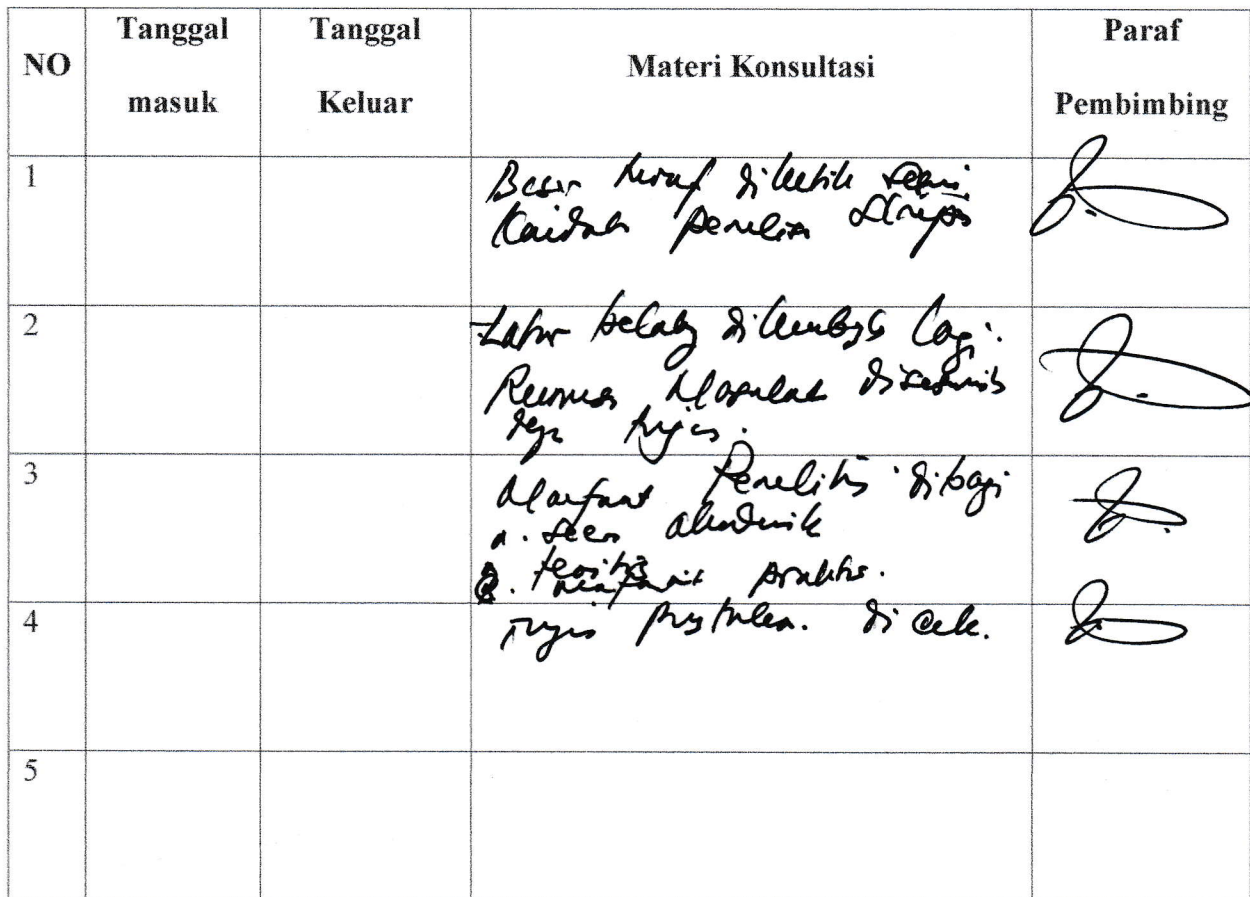 NO Tanggal masuk Tanggal Keluar Materi Konsultasi Paraf Pembimbing
1 Besar huruf diketik sesuai
Kaidah penelitian skripsi
2 -Latar belakang dikembangkan lagi.
Rumusan Masalah disesuaikan
dengan tujuan.
3 Manfaat Penelitian dibagi
a. secara akademik
manfaat praktis.
4 Tinjauan pustaka. di cek.
5